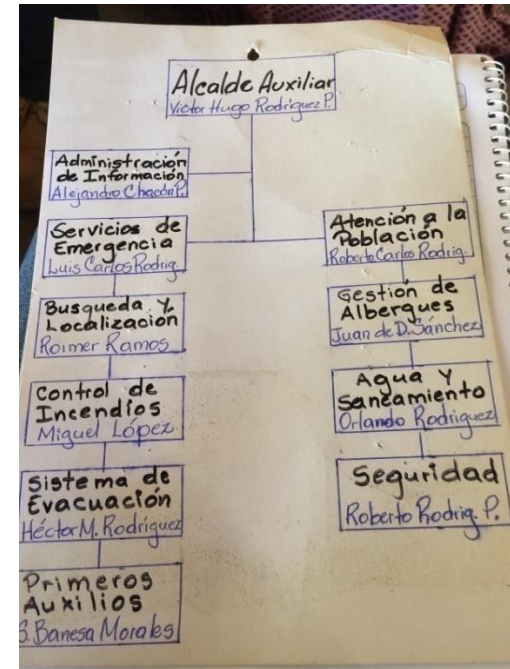 Alcalde Auxiliar
Victor Hugo Rodriguez P.
Administración
de Información
Alejandro Chacón P.
Servicios de
Emergencia
Luis Carlos Rodrig.
Busqueda y
Localización
Roimer Ramos
Control de
Incendios
Miguel López
Sistema de
Evacuación
Héctor M. Rodriguez
Primeros
Auxilios
S. Banesa Morales
Atención a la
Población
Roberto Carlos Rodrig.
Gestión de
Albergues
Juan de D. Sánchez
Agua y
Saneamiento
Orlando Rodriguez
Seguridad
Roberto Rodrig. P.